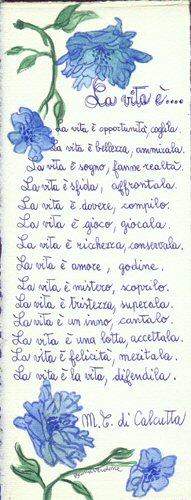 La vita è....
La vita è opportunità, coglila.
La vita è bellezza, ammirala.
La vita è sogno, fanne realtà.
La vita è sfida, affrontala.
La vita è dovere, compilo.
La vita è gioco, giocala.
La vita è richezza, conservala.
La vita è amore, godine.
La vita è mistero, scoprilo.
La vita è tristezza, superala.
La vita è un inno, cantalo.
La vita è una lotta, accettala.
La vita è felicità, meritala.
La vita è la vita, difendila.
M.T. di Calcutta